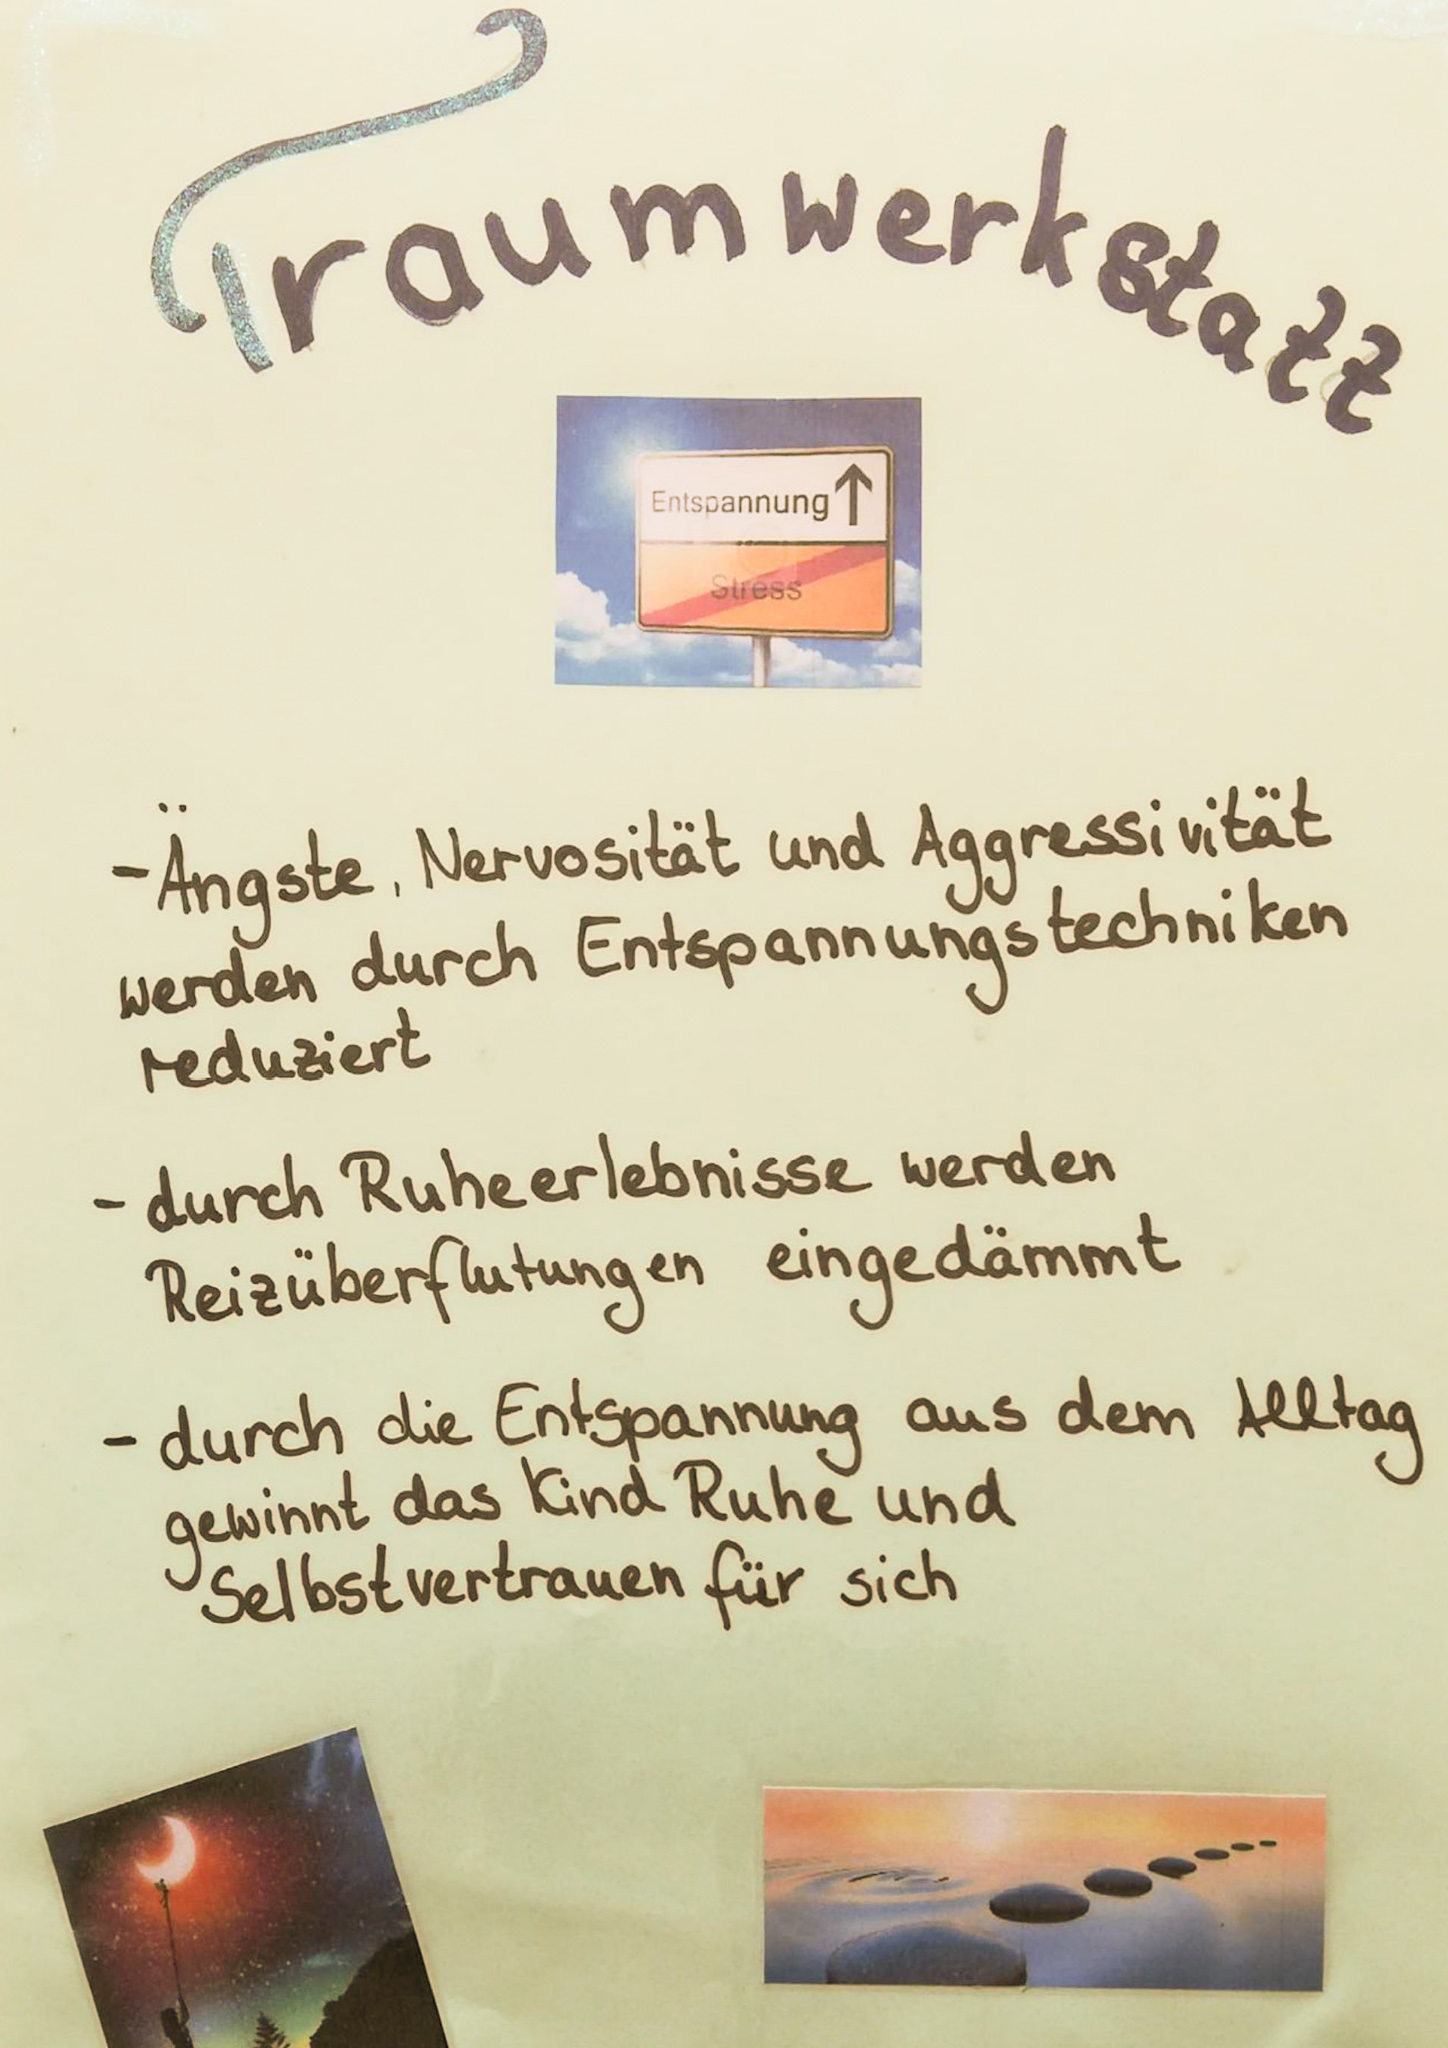 Traumwerkstatt
Entspannung ↑
Stress
- Ängste, Nervosität und Aggressivität
werden durch Entspannungstechniken
reduziert
- durch Ruheerlebnisse werden
Reizüberflutungen eingedämmt
- durch die Entspannung aus dem Alltag
gewinnt das Kind Ruhe und
Selbstvertrauen für sich